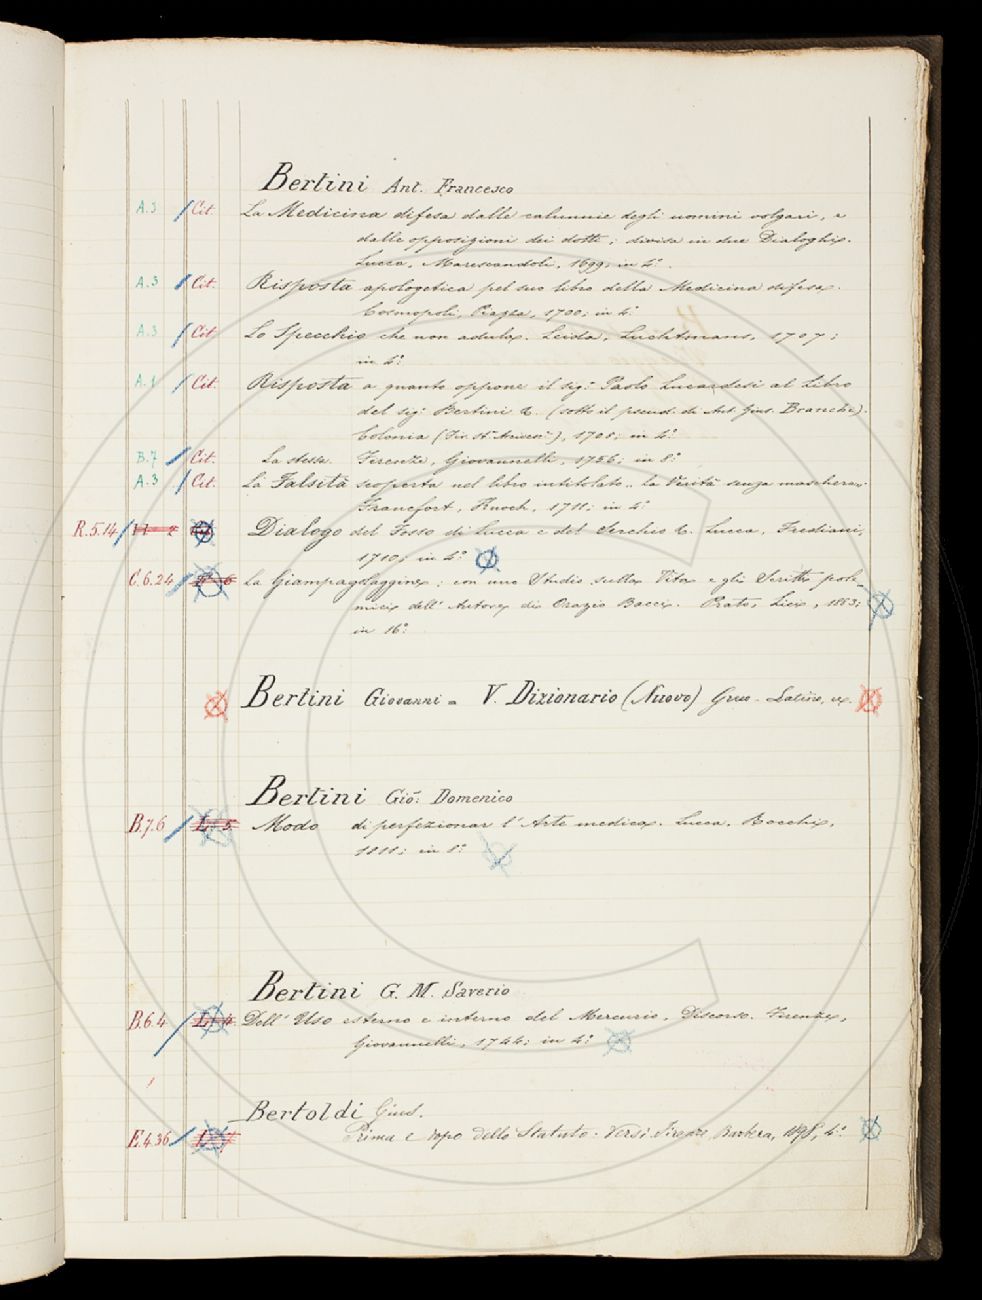 Bertini Ant. Francesco
A.3 Cit. La Medicina difesa dalle calunnie degli uomini volgari, e
dalle opposizioni dei dotti; divisa in due Dialoghi.
Lucca, Marescandoli, 1699; in 4°.
A.3 Cit. Risposta apologetica pel suo libro della Medicina difesa.
Cosmopoli, 1700; in 4°.
A.3 Cit. Lo Specchio che non adula. Leida, Luchtmans, 1707;
in 4°.
A.1 Cit. Risposta a quanto oppone il sig. Paolo Lucardesi al Libro
del sig. Bertini &. (sotto il pseud. di Ant. Gius. Branchi).
Colonia 1708; in 4°.
B.7 Cit. La stessa. Firenze, Giovannelli, 1756; in 8°.
A.3 Cit. La Falsità scoperta nel libro intitolato „ la Verità senza maschera.
Francfort, Knoch, 1711; in 4°.
R.5.14 Dialogo del Fosso di Lucca e del Serchio &. Lucca, Frediani,
1710; in 4°.
C.6.24 La Giampagolaggine; con uno Studio sulla Vita e gli Scritti pole-
mici dell' Autore di Orazio Bacci. Prato, Lici, 1883;
in 16°.
Bertini Giovanni = V. Dizionario (Nuovo) Greco-Latino, ec.
Bertini Gio: Domenico
B.7.6 L. 5 Modo di perfezionar l' Arte medica. Lucca. Rocchi,
in 8°.
Bertini G. M. Saverio
B.6.4 L. 4 Dell' Uso esterno e interno del Mercurio, Discorso. Firenze,
Giovannelli, 1744; in 4°.
Bertoldi Gius.
F.4.36 Prima e dopo dello Statuto: Versi. Firenze, Barbèra, 4°.